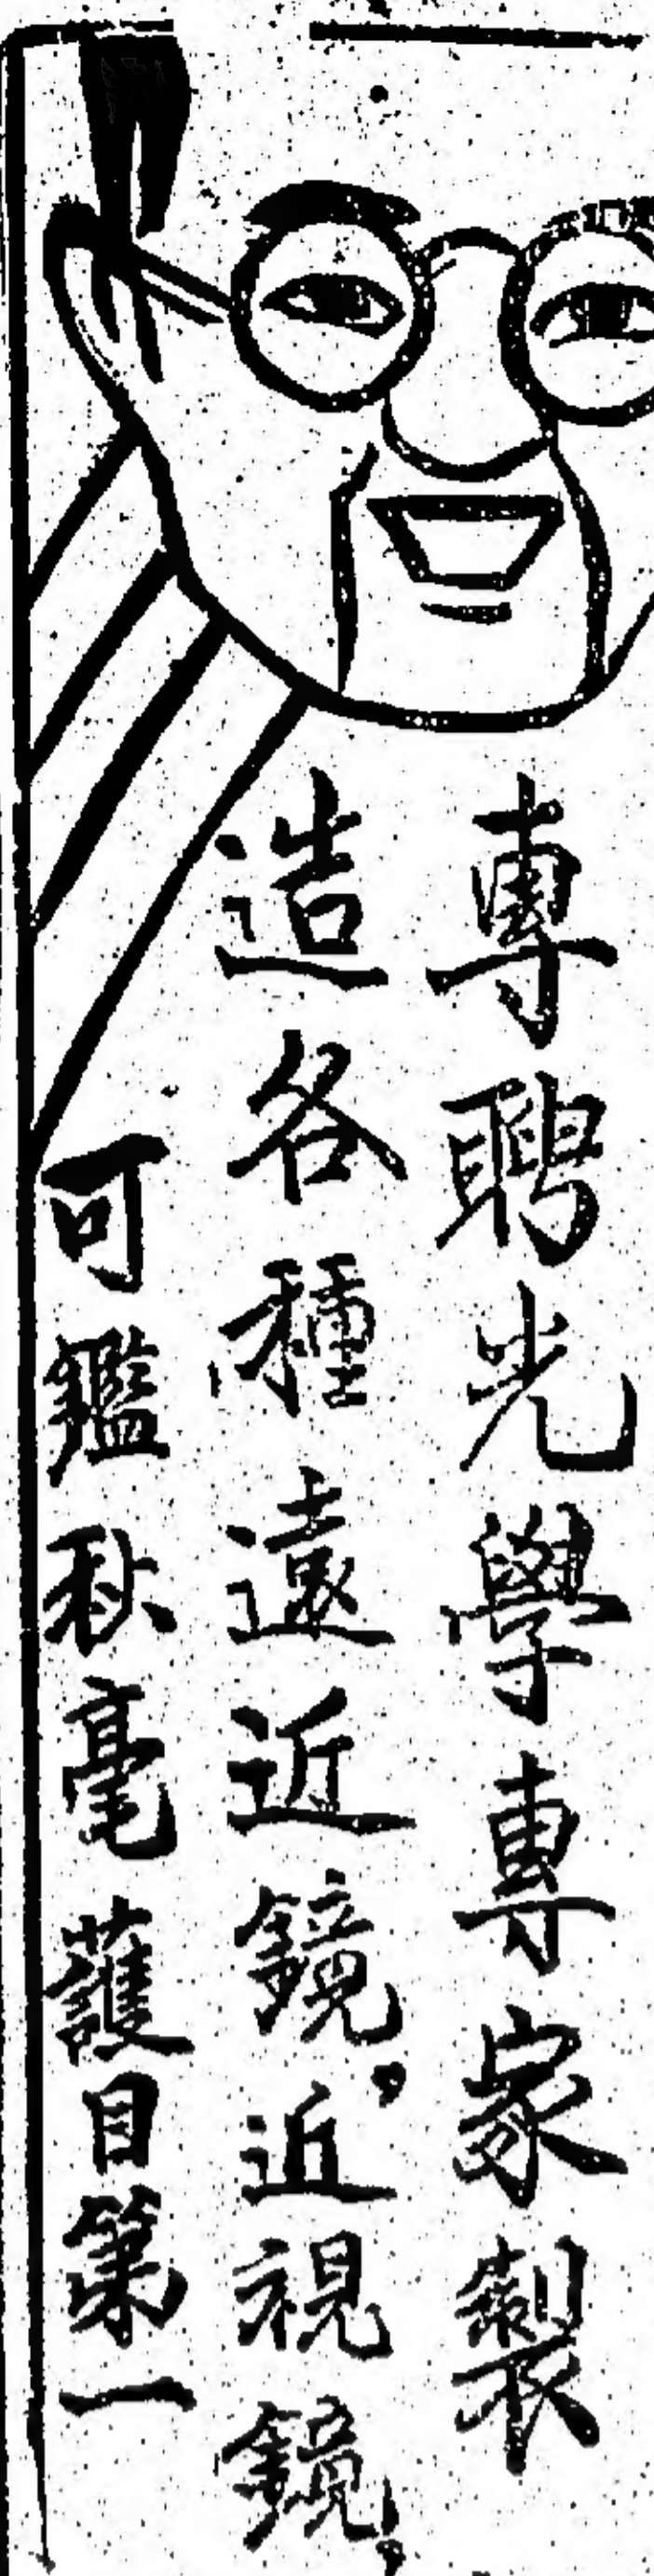 專聘光學專家製
造各種遠近鏡，近視鏡，
可鑑秋毫護目第一